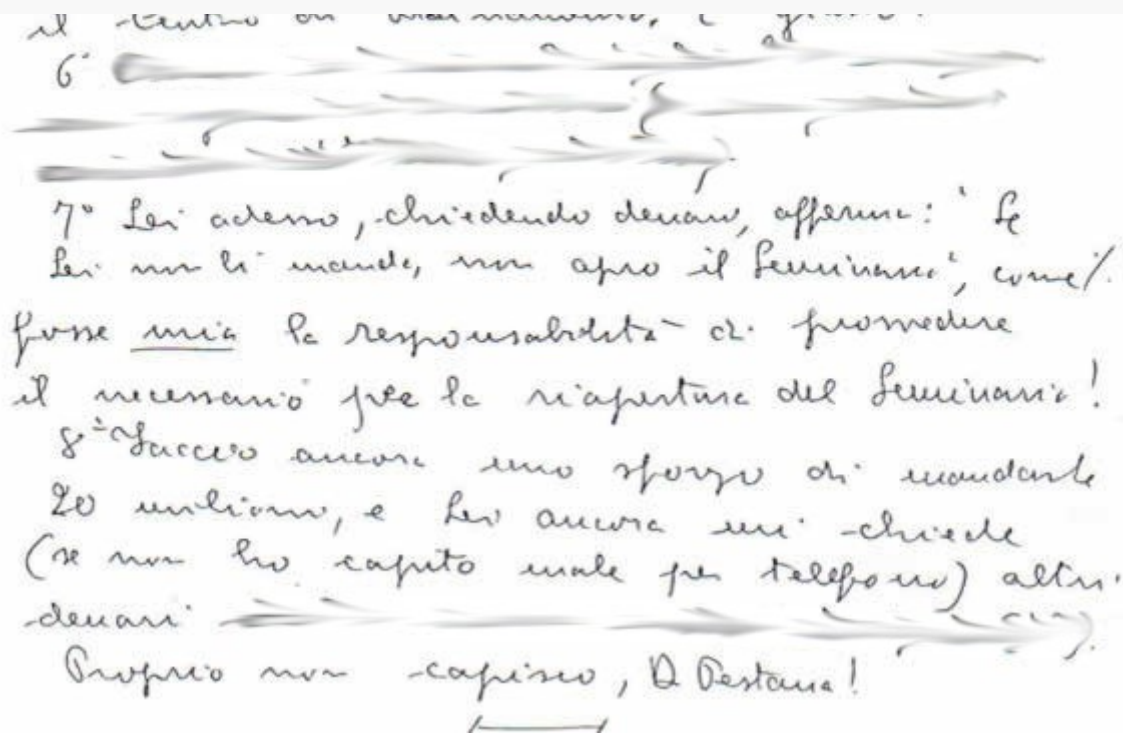 il Centro di
6°
7° Lei adesso, chiedendo denaro, afferma: "Se
Lei non li manda, non apro il Seminario", come /.
fosse mia la responsabilità di provvedere
il necessario per la riapertura del Seminario!
8° Faccio ancora uno sforzo di mandarle
20 milioni, e Lei ancora mi chiede
(se non ho capito male per telefono) altri
denari
Proprio non capisco, D. Pestana!